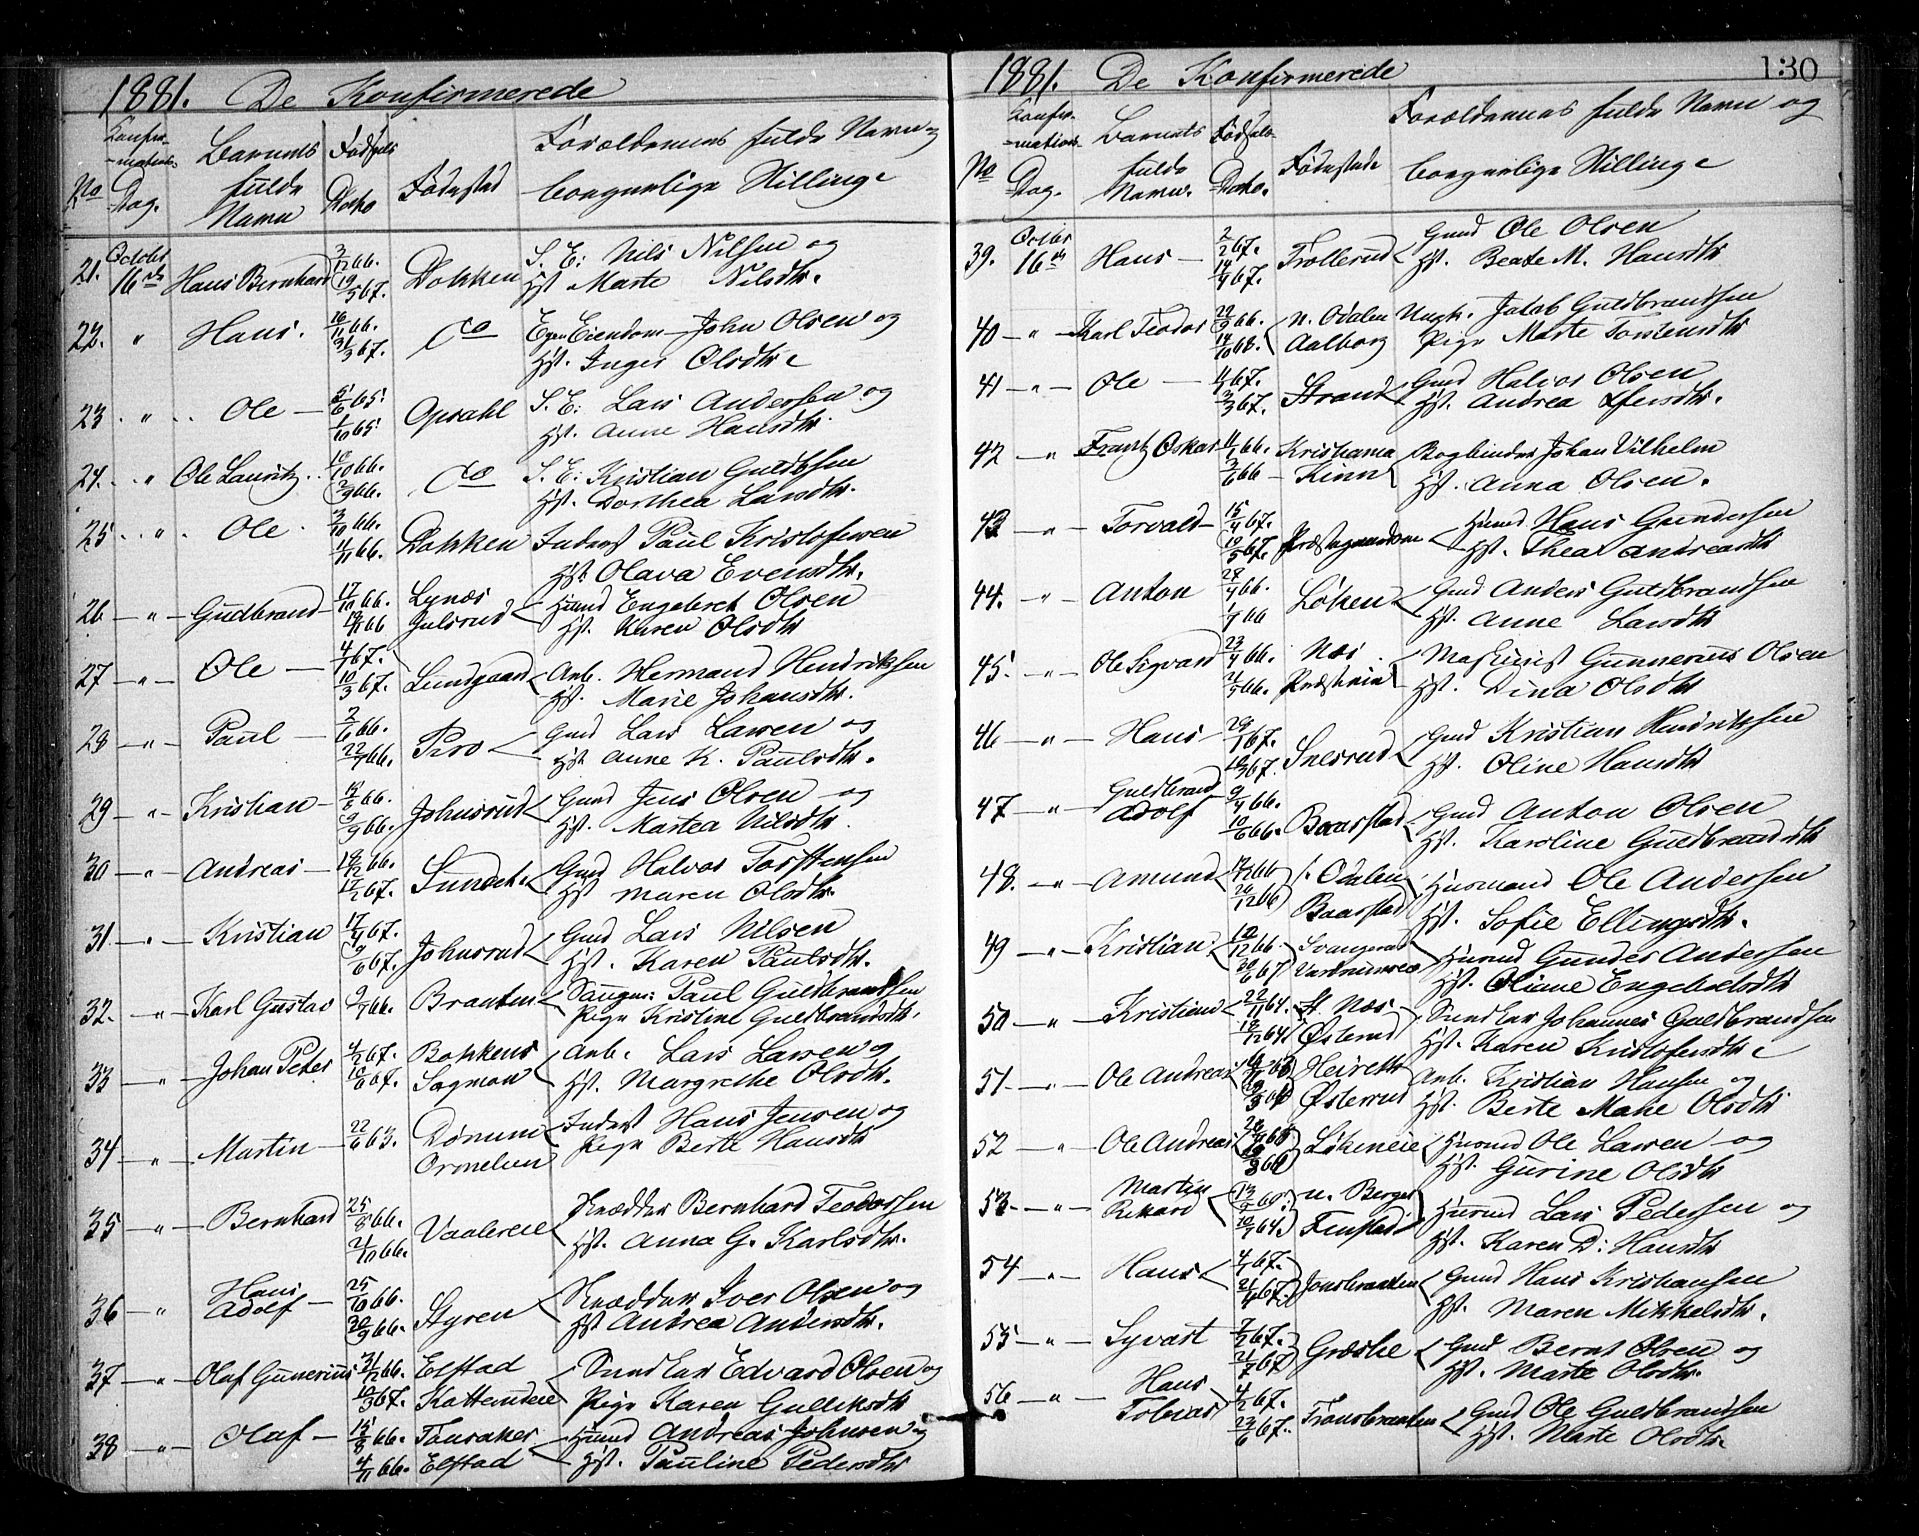 1881. De Konfirmerede
No
Konfir-
-mations-
Dag.
Barnets
fulde
Navn
Fødsels
Daabs
Fødested
Forældrenes fulde Navn og
borgerlige Stilling
21. Octobr 16de Hans Bernhard 3/12 66. 19/5 67. Dokken S. E: Nils Nilsen og
Hst Marte Nilsdtr.
22. " Hans. 16/11 66. 31/3 67. Do Egen Eiendom John Olsen og
Hst. Inger Olsdtr
23 " Ole 5/6 65 1/10 65 Opsahl S. E: Lars Andersen og
Hst. Anne Hansdtr.
24. " Ole Lauritz 66. 66. Do S. E: Kristian Guldbsen
Hst. Dorthea Larsdtr.
25 " Ole 3/10 66. 1/11 66. Dokken Inderst Paul Kristofersen
Hst. Olava Evensdtr.
26 " Gudbrand 17/10 66. 66 Lynæs Julsrud Husmd Engebret Olsen
Hst. Karen Olsdtr
27 " Ole 4/1 67. 10/3 67. Lundgaard Arb. Hermand Hendriksen
Hst. Marie Johansdtr.
28 " Paul 2/6 66. 22/7 66. Pro Gmd Lars Larsen og
Hst Anne K. Paulsdtr.
29 " Kristian 66. 9/9 66. Johnsrud Gmd Jens Olsen og
Hst. Martea Nilsdtr.
30 " Andreas 19/12 66. 17/2 67. Sundet. Gmd Halvor Torstensen
Hst Maren Olsdtr.
31 " Kristian 17/4 67. 9/6 67. Johnsrud Gmd Lars Nilsen
Hst. Karen Paulsdtr.
32. " Karl Gustav 9/7 66. Branten Saugm: Paul Guldbrandsen
Pige Kristine Guldbrandsdtr.
33 " Johan Peter 4/2 67. 10/6 67. Bokkens Sagmoen Arb. Lars Larsen og
Hst. Margrethe Olsdtr.
34 " Martin 22/6 63. Dønum Ormelien Inderst Hans Jensen og
Pige Berte Hansdtr
35 " Bernhard 25/8 66. 21/10 66. Vaalereie Skrædder Bernhard Teodorsen
Hst. Anna G. Karlsdtr.
36 " Hans Adolf 25/6 66. 30/9 66. Styren Skrædder Iver Olsen og
Hst Andrea Andersdtr.
37 " Olaf Gunerius 31/12 66. 10/3 67. Elstad Kattemdeie Snedker Edvard Olsen og
Pige Karen Gulliksdtr
38 " Olaf 15/8 66. 4/11 66. Tonsaker Elstad Husmd Andreas Johnsen og
Hst. Pauline Pedersdtr
1881. De Konfirmerede 130
No
Konfir-
-mations-
Dag.
Barnets
fulde
Navn.
Fødsels
Daabs.
Fødestede
Forældrenes fulde Navn og
borgerlige Stilling
39. Octbr 16de Hans 2/2 67. 14/4 67. Trollerud Gmd Ole Olsen
Hst. Beate M. Hansdtr
40 " Karl Teodor 29/9 66. 14/10 68. n. Odalen Aalborg Ungk. Jakob Guldbrandsen
Pige Marte Torstensdtr
41 " Ole 67. 3/3 67. Strand Gmd Halvor Olsen
Hst. Andrea
42 " Frantz Oskar 66. 3/6 66 Kristiania Kinn Bogbinder Johan Vilhelm
Hst. Anna Olsen.
43 " Torvald 15/4 67. 19/5 67. Præstegaarden Husmd Hans Gundersen
Hst. Thea Andreasdtr
44. " Anton 28/4 66. 1/7 66 Løken Gmd Anders Guldbrandsen
Hst. Anne Larsdtr
45. " Ole Sigvard 23/4 66. 66. Næs Præsteeie Maskinist Gunnerius Olsen
Hst. Dina Olsdtr
46 " Hans 29/1 67. 10/3 67. Snesrud Gmd Kristian Hendriksen
Hst. Oline Hansdtr
47 " Guldbrand Adolf 9/4 66. 10/6 66. Baarstad Gmd Anton Olsen
Hst. Karoline Guldbrandsdtr
48. " Amund 66 26/12 66 s. Odalen Baarstad Husmand Ole Andersen
Hst. Sofie Ellingsdtr.
49 " Kristian 12/12 66. 67 Husmd Gunder Andersen
Hst. Oliane Engebretsdtr
50 " Kristian 22/11 64. 18/12 64 St. Næs Østerud Snedker Johannes Guldbrandsen
Hst. Karen Kristofersdtr
51 " Ole Andreas Østerud Arb. Kristian Hansen og
Hst. Berte Marie Olsdtr
52 " Ole Andreas Løkeneie Husmd Ole Larsen og
Hst. Gurine Olsdtr
53 " Martin Rikard 10/7 64. n. Berger Finstad Husmd Lars Pedersen og
Hst. Karen D: Hansdtr
54 " Hans 4/1 67. 21/4 67. Jonsbraaten Gmd Hans Kristiansen
Hst. Maren Mikkelsdtr.
55 " Syvert 7/2 67. 21/7 67. Græslie Gmd Bernt Olsen og
Hst. Marte Olsdtr.
56 " Hans Tobias 4/2 67. 23/6 67. Tronsbraaten Gmd Ole Guldbrandsen
Hst. Marte Olsdtr.